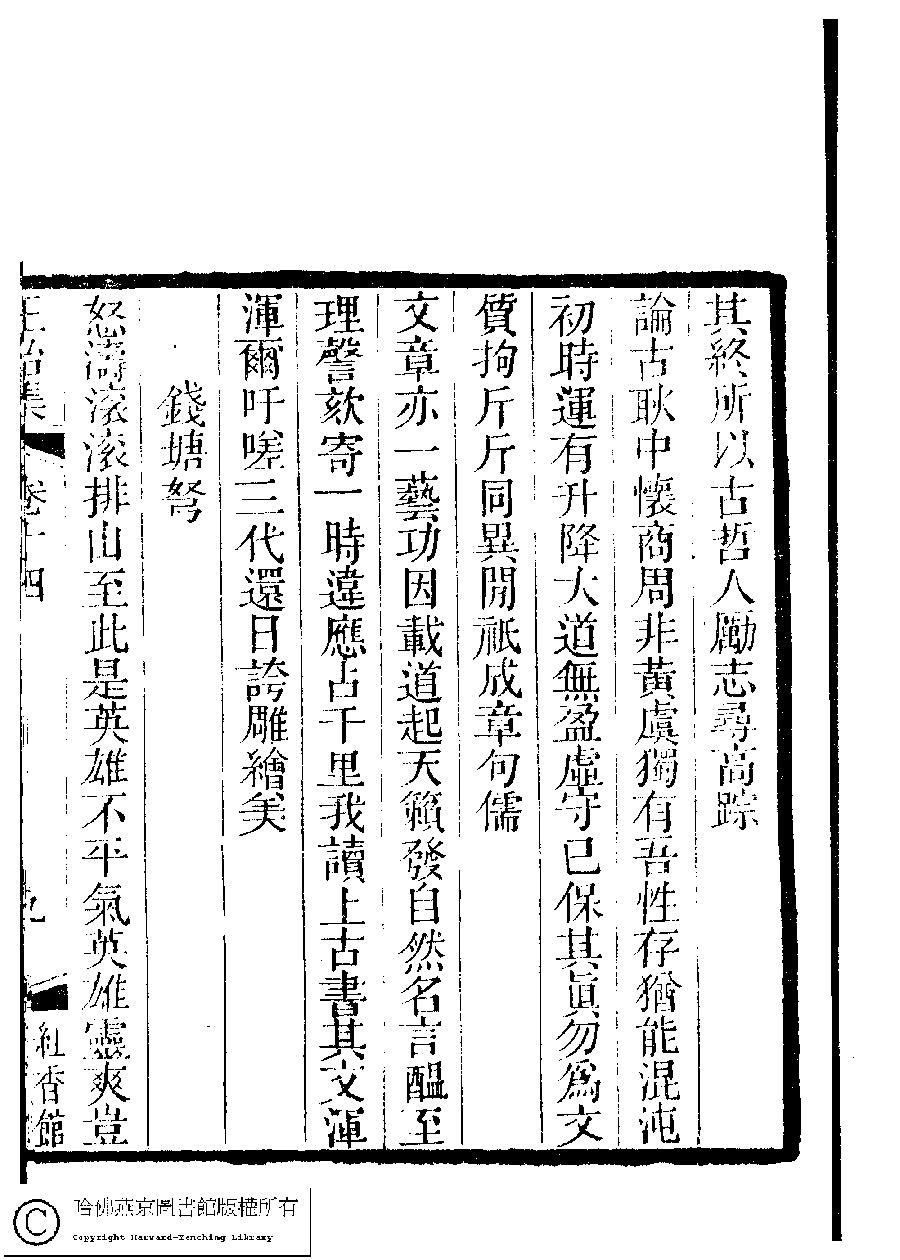 其終所以古哲人勵志尋高踪
論古耿中懷商周非黃虞獨有吾性存猶能混沌
初時運有升降大道無盈虛守已保其眞勿爲文
質拘斤斤同異閒祇成章句儒
文章亦一藝功因載道起天籟發自然名言醞至
理謦欬寄一時違應占千里我讀上古書其文渾
渾爾吁嗟三代還日誇雕繪矣
錢塘弩
怒濤滚滚排山至此是英雄不平氣英雄靈爽豈
正始集 卷十四 九 紅香館
哈佛燕京圖書館版權所有
Copyright Harvard-Yenching Library